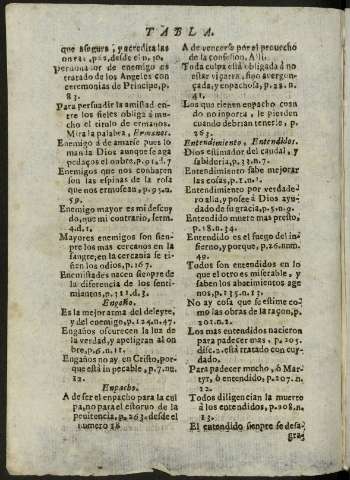 TABLA.
que asegura, y acredita las
onras, pas, desde el n. 30.
Perdonador de enemigo es
tratado de los Angeles con
ceremonias de Principe, p.
83.
Para persuadir la amistad en-
tre los fieles obliga á mu-
cho el titulo de ermanos.
Mira la palabra, Ermanos.
Enemigo á de amarse pues lo
manda Dios aunque se aga
pedaços el onbre, p. 91. d. 7
Enemigos que nos conbaten
son las espinas de la rosa
que nos ermosean, p. 95. n.
59.
Enemigo mayor es mi descuy
do, que mi contrario, serm.
4. d. 1.
Mayores enemigos son sien-
pre los mas cercanos en la
sangre, en la cercania se ti-
ñen los odios, p. 167.
Enemistades nacen sienpre de
la diferencia de los senti-
mientos, n. 311. d. 3.
Engaño.
Es la mejor atma del deleyte,
y del enemigo, p. 124. n. 47.
Engaños oscurecen la luz de
la verdad, y apeligran al on
bre, p. 6. n. 11.
Engaños no ay, en Cristo, por-
que está in pecable, p. 7. nu.
12.
Enpacho.
A de ser el enpacho para la cul
pa, no para el estorvo de la
penitencia, p. 263. desde el
numero 38
A de vencerse por el provecho
de la confesion, Alli.
Toda culpa está obligada á no
estar viçarra, sino avergon-
çada, y enpachosa, p. 28. n.
41.
Los que tienen enpacho cuan
do no inporta, le pierden
cuando debrian tenerle, p.
263.
Entendimiento, Entendidos.
Dios estimador del caudal, y
sabiduria, p. 33. n. 7.
Entendimiento sabe mejorar
las cosas, p. 2. n. 1.
Entendimiento por verdade-
ro alia, y posee á Dios ayu-
dado de su gracia, p. 5. n. 9.
Entendido muere mas presto,
p. 18. n. 34.
Entendido es el fuego del in-
fierno, y porque, p. 26. num.
49.
Todos son entendidos en lo
que el otro es miserable, y
saben los abatimientos age
nos, p. 135. n. 13.
No ay cosa que se estime co-
mo las obras de la raçon, p.
202. n. 2.
Los mas entendidos nacieron
para padecer mas, p. 205.
disc. 2. está tratado con cuy-
dado.
Para padecer mucho, ó Mar-
tyr, ó entendido, p. 207. n.
12.
Todos diligencian la muerte
á los entendidos, p. 208. n.
13.
El entendido sienpre se desa-
gra-